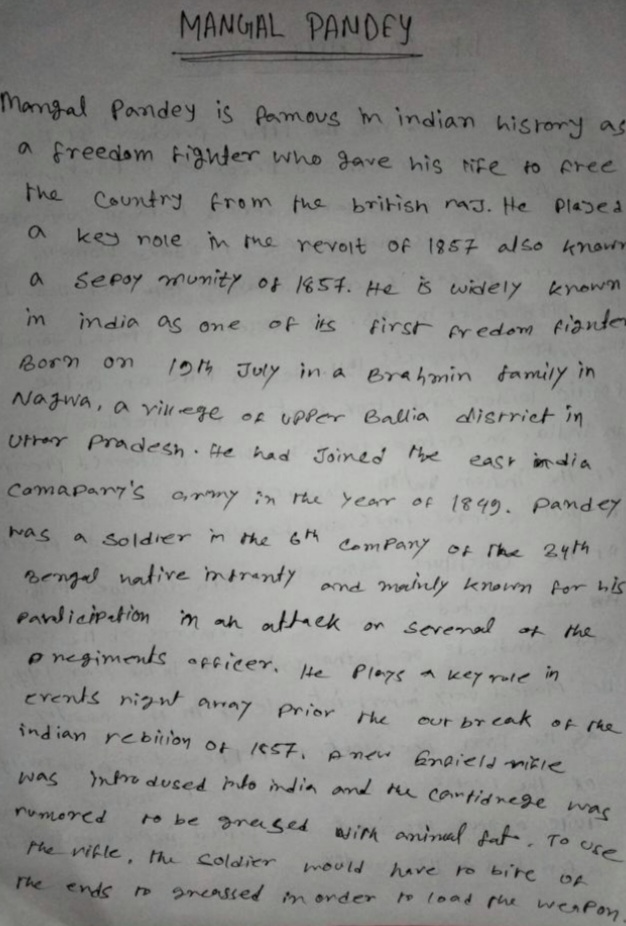 MANGAL PANDEY
Mangal Pandey is famous in indian history as
a freedom fighter who gave his life to free
the Country from the british raj. He Played
a key role in the revolt of 1857 also known
a sepoy munity of 1857. He is widely known
in india as one of its first fredom fighter
Born on 19th July in a Brahmin family in
Nagwa, a villege of upper Ballia district in
Uttar Pradesh. He had Joined the east india
Comapany's army in the year of 1849. Pandey
was a soldier in the 6th company of the 34th
Bengal native infranty and mainly known for his
participation in an attack on several of the
regiments officer. He Plays a key role in
events right away prior the out break of the
indian rebilion of 1857. A new Enfield rifle
was introdused into india and the cartidrege was
rumored to be greased with animal fat. To use
the rifle, the soldier would have to bite of
the ends to greassed in order to load the weapon.